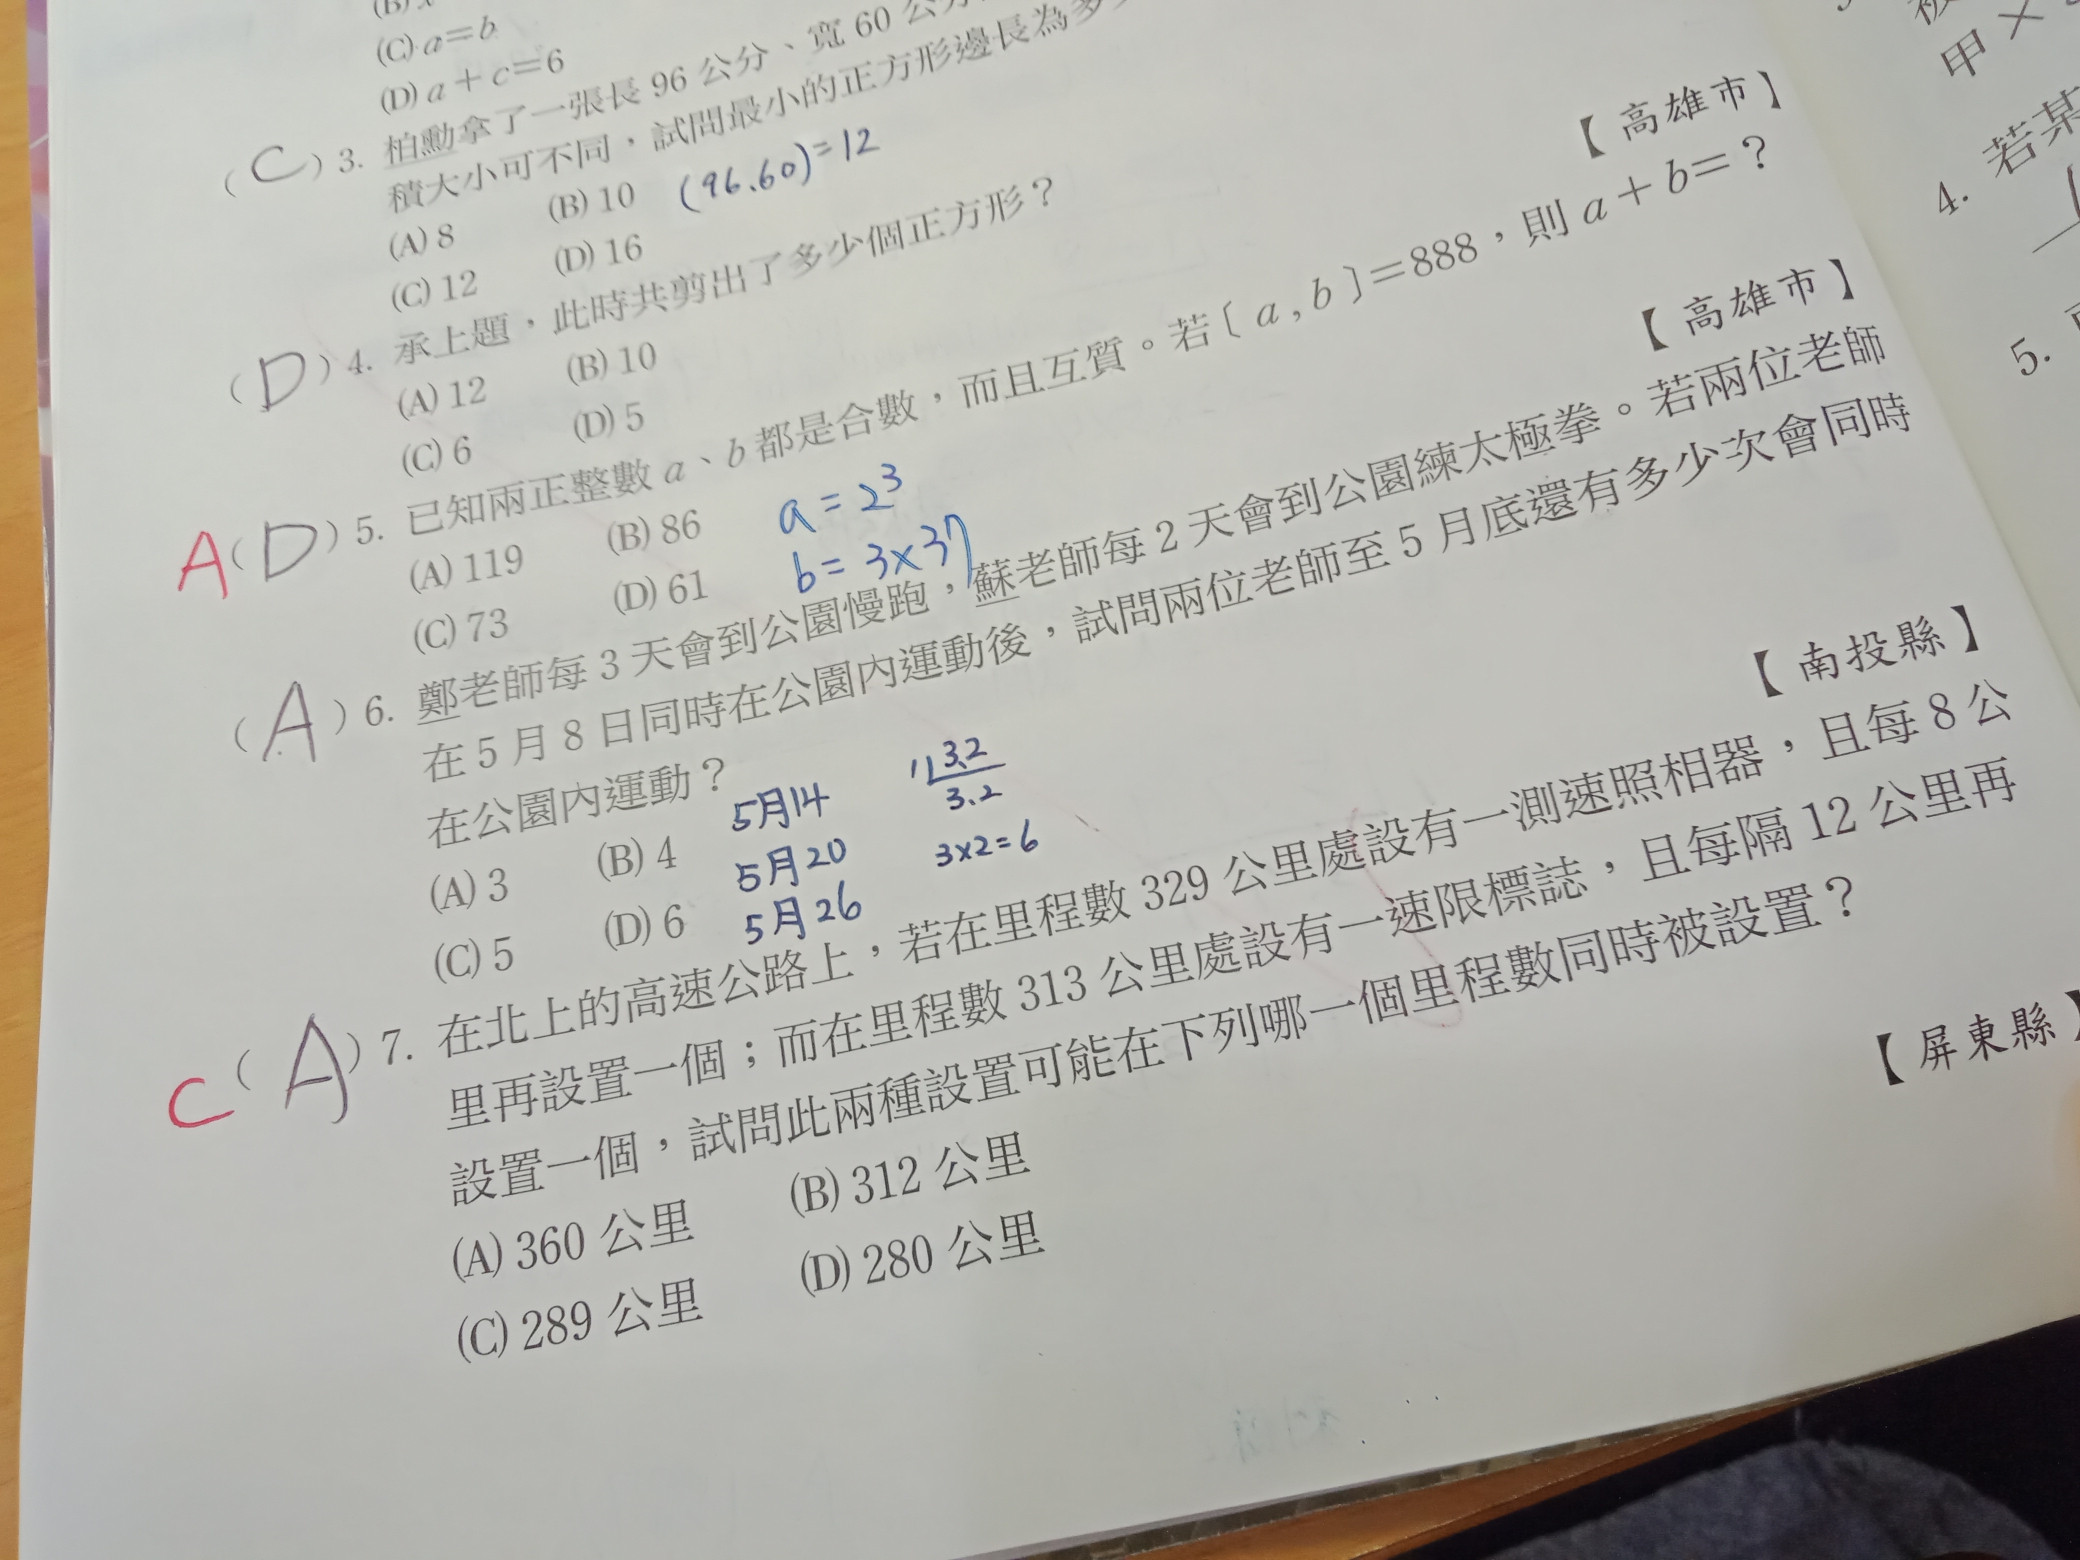 (C) a＝b
(D) a＋c＝6
(C) 3. 柏勳拿了一張長 96 公分、寬 60 公分
積大小可不同，試問最小的正方形邊長為多
(A) 8 (B) 10 (96.60)=12
(C) 12 (D) 16
【高雄市】
(D) 4. 承上題，此時共剪出了多少個正方形？
(A) 12 (B) 10
(C) 6 (D) 5
A (D) 5. 已知兩正整數 a、b 都是合數，而且互質。若〔a , b〕＝888，則 a＋b＝？
(A) 119 (B) 86 a = 2³
(C) 73 (D) 61 b = 3×37
【高雄市】
(A) 6. 鄭老師每 3 天會到公園慢跑，蘇老師每 2 天會到公園練太極拳。若兩位老師
在 5 月 8 日同時在公園內運動後，試問兩位老師至 5 月底還有多少次會同時
在公園內運動？
(A) 3 (B) 4 5月14 1 3.2
(C) 5 (D) 6 5月20 3.2
5月26 3×2=6
【南投縣】
C (A) 7. 在北上的高速公路上，若在里程數 329 公里處設有一測速照相器，且每 8 公
里再設置一個；而在里程數 313 公里處設有一速限標誌，且每隔 12 公里再
設置一個，試問此兩種設置可能在下列哪一個里程數同時被設置？
(A) 360 公里 (B) 312 公里
(C) 289 公里 (D) 280 公里
【屏東縣】
甲×
4. 若某
5.